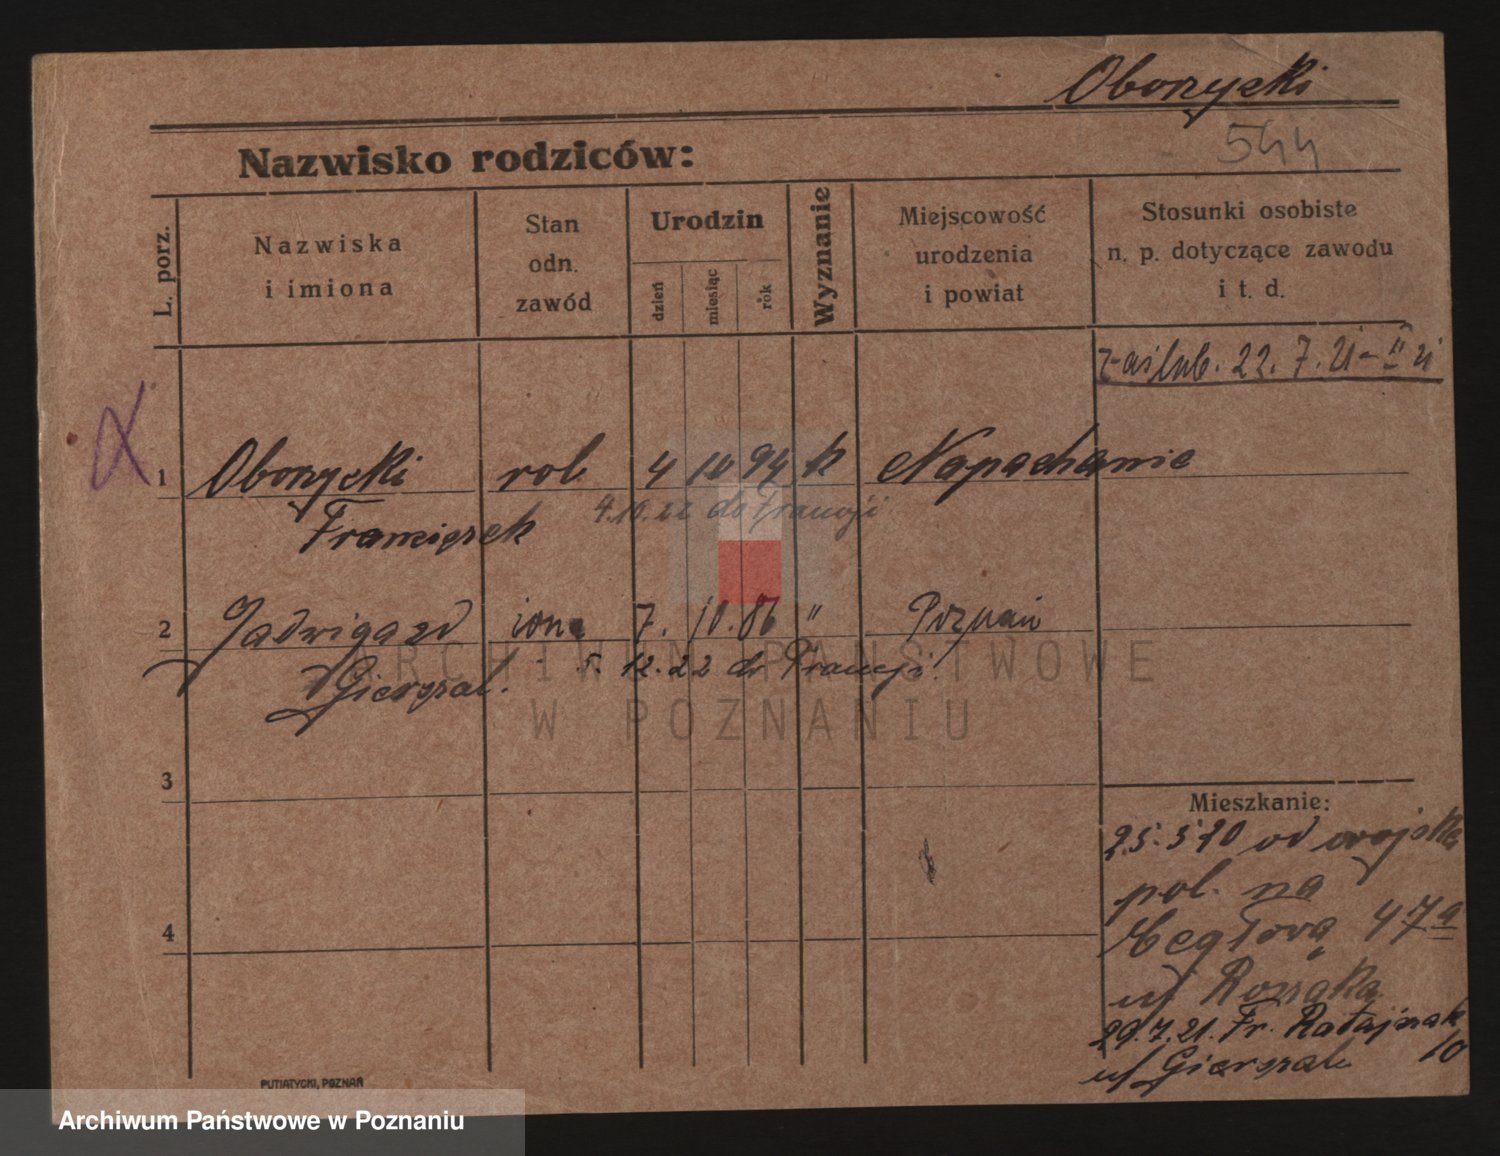 Oborzycki
544
Nazwisko rodziców:
L. porz.
Nazwiska
i imiona
Stan
odn.
zawód
Urodzin
dzień
miesiąc
rok
Wyznanie
Miejscowość
urodzenia
i powiat
Stosunki osobiste
n. p. dotyczące zawodu
i t. d.
zaślub. 22. 7. 21
1 Oborzycki rob 4 10 94 k Napachanie
4.10.22 do Francji
Franciszek
2 Jadwiga zd żona 7. 10. 86 " Poznań
5. 12. 22 do Francji
Gierszal.
ARCHIWUM PAŃSTWOWE
W POZNANIU
3
4
Mieszkanie:
25. 5 20 od wojska
pol. na
47a
u/
29.7.21. Fr. Ratajczak
10
u/ Gierszal
PUTIATYCKI, POZNAŃ
Archiwum Państwowe w Poznaniu